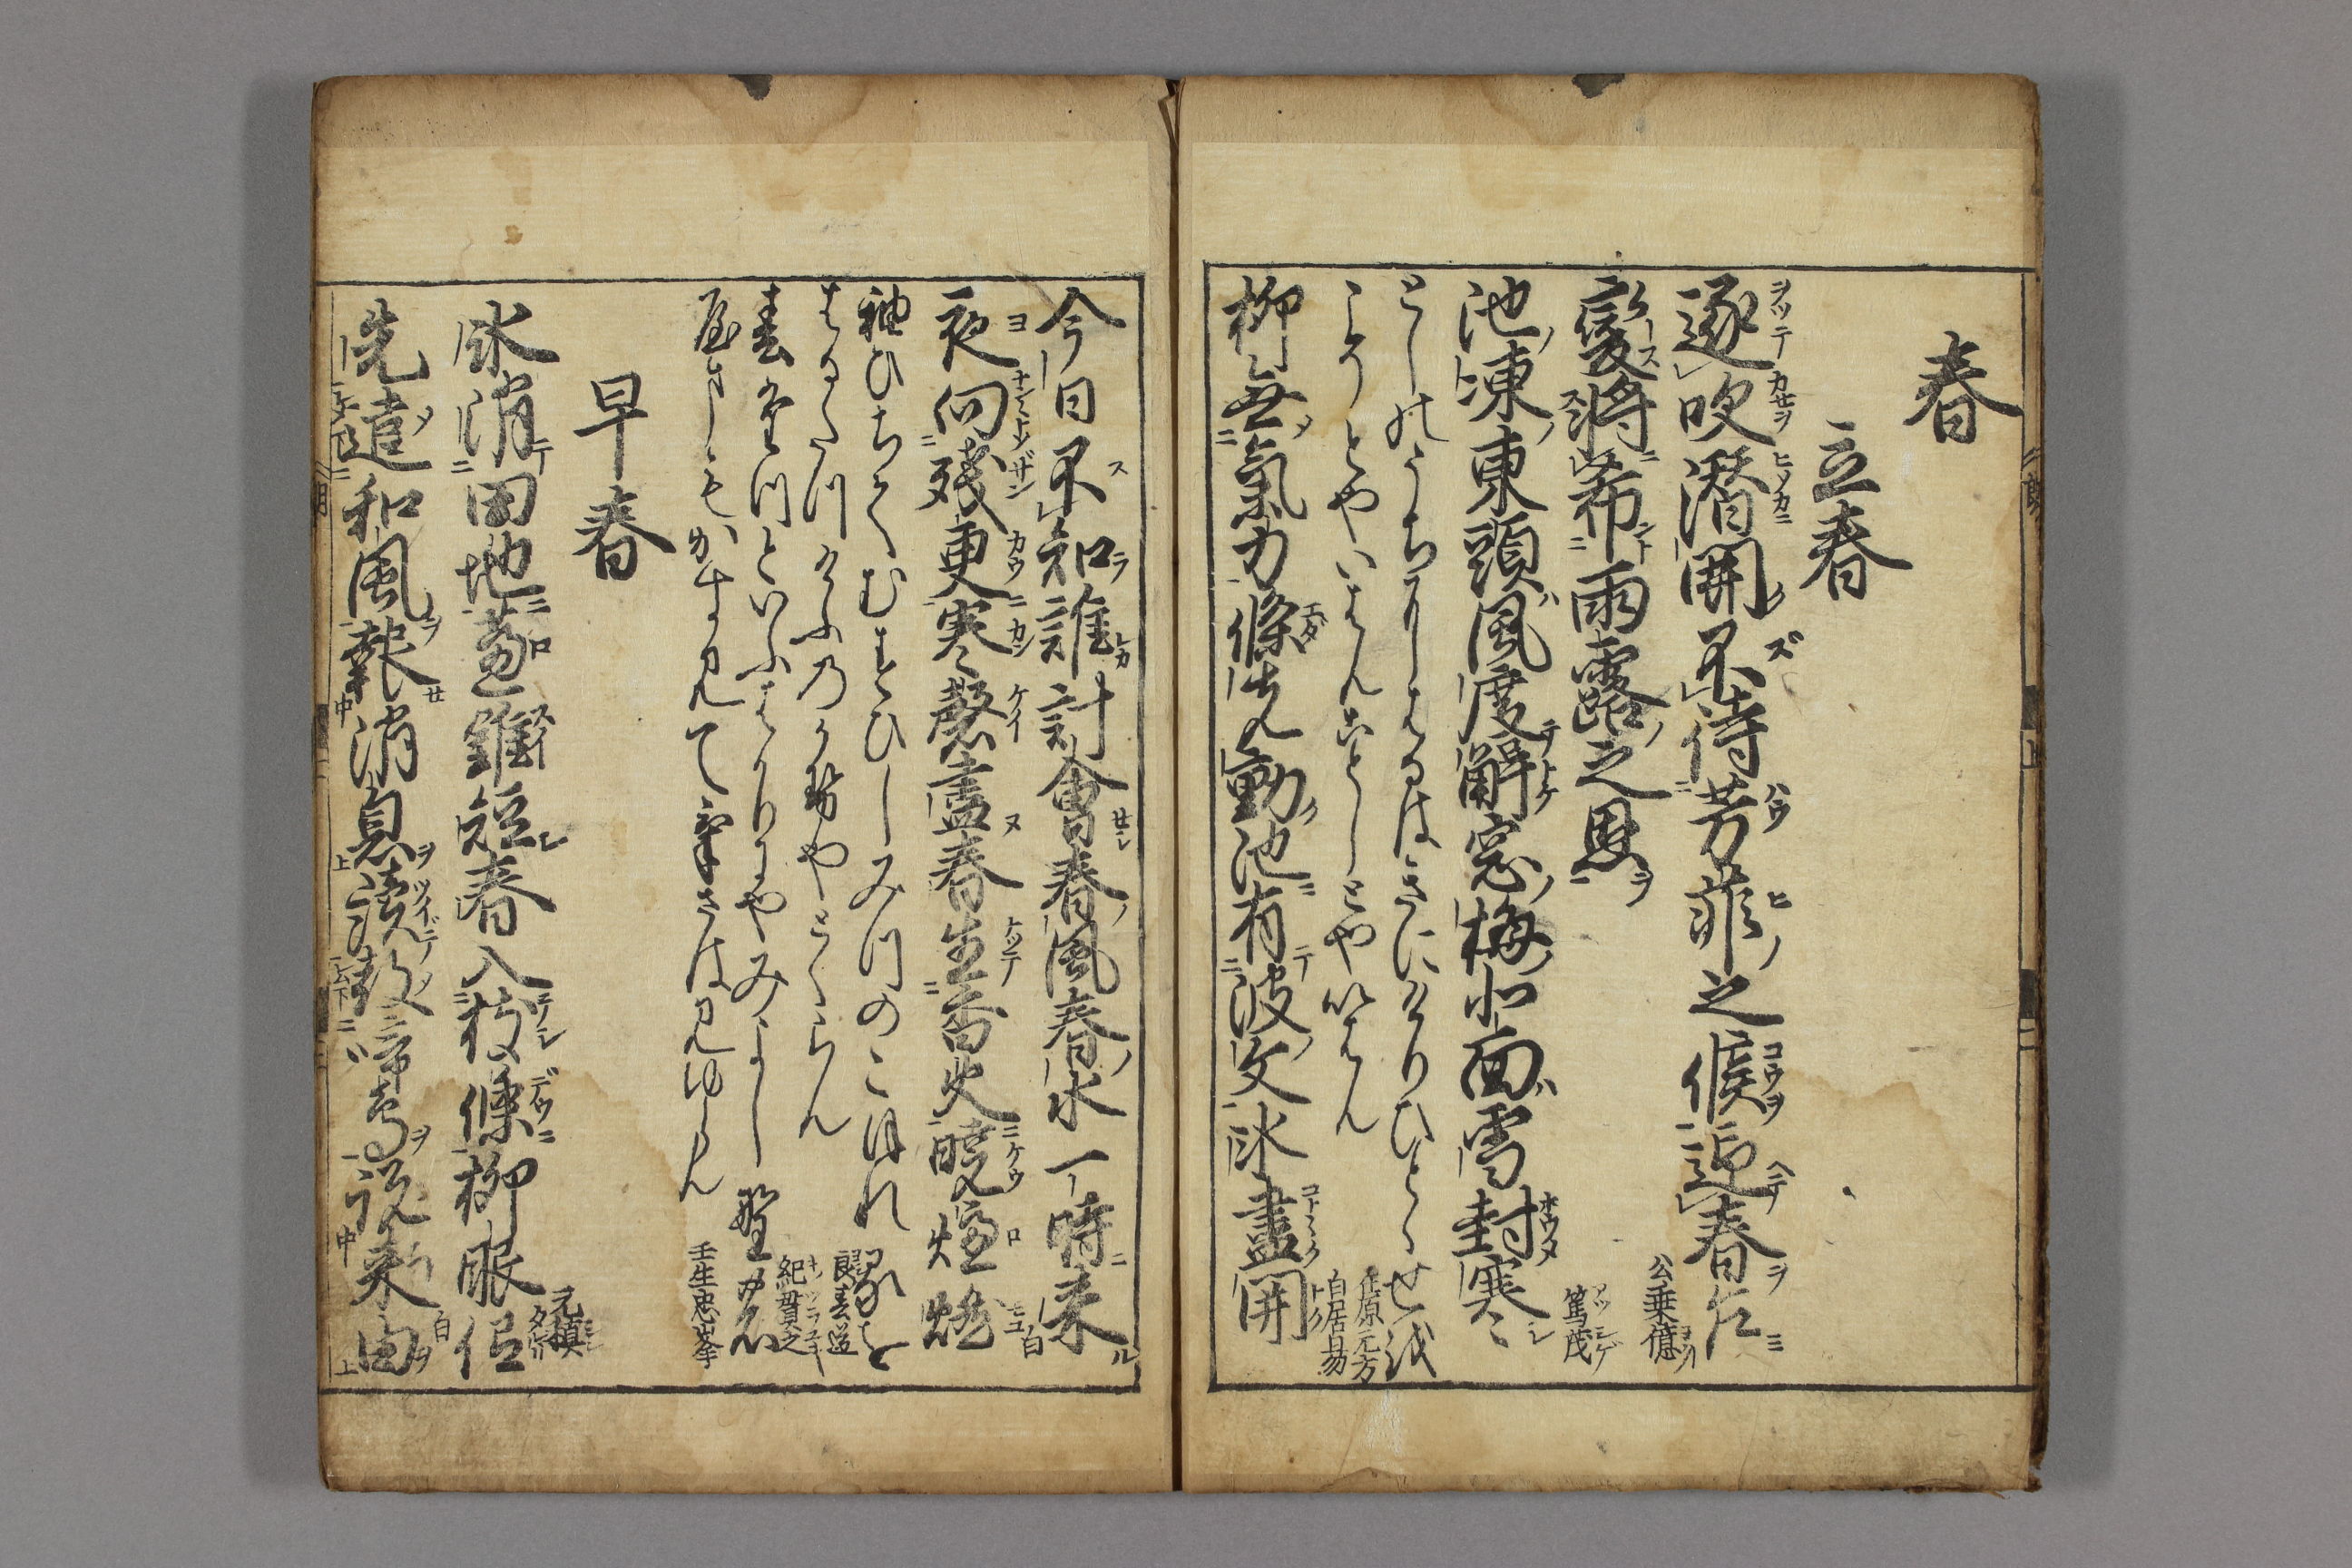 春
立春
逐吹潜開不待芳菲之候迎春乍
變将希雨露之恩
公乗億
篤茂
池凍東頭風度解窓梅北面雪封寒
としのうちにはるはきにけりひとゝせを
こそとやいはんことしとや以はん
在原元方
白居易
柳無氣力條先動池有波文氷盡開
今日不知誰計會春風春水一時来
白
夜向残更寒磬盡春生香火曉爐燃
良春道
袖ひちてむすひしみつのこほれるを
はるたつけふのかせやとくらん
紀貫之
春たつといふはかりにやみよし野の
山もかすみてけさは見ゆらん
壬生忠岑
早春
氷消田地蘆錐短春入枝條柳眼低
元稹
先遣和風報消息續教啼鳥説来由
白